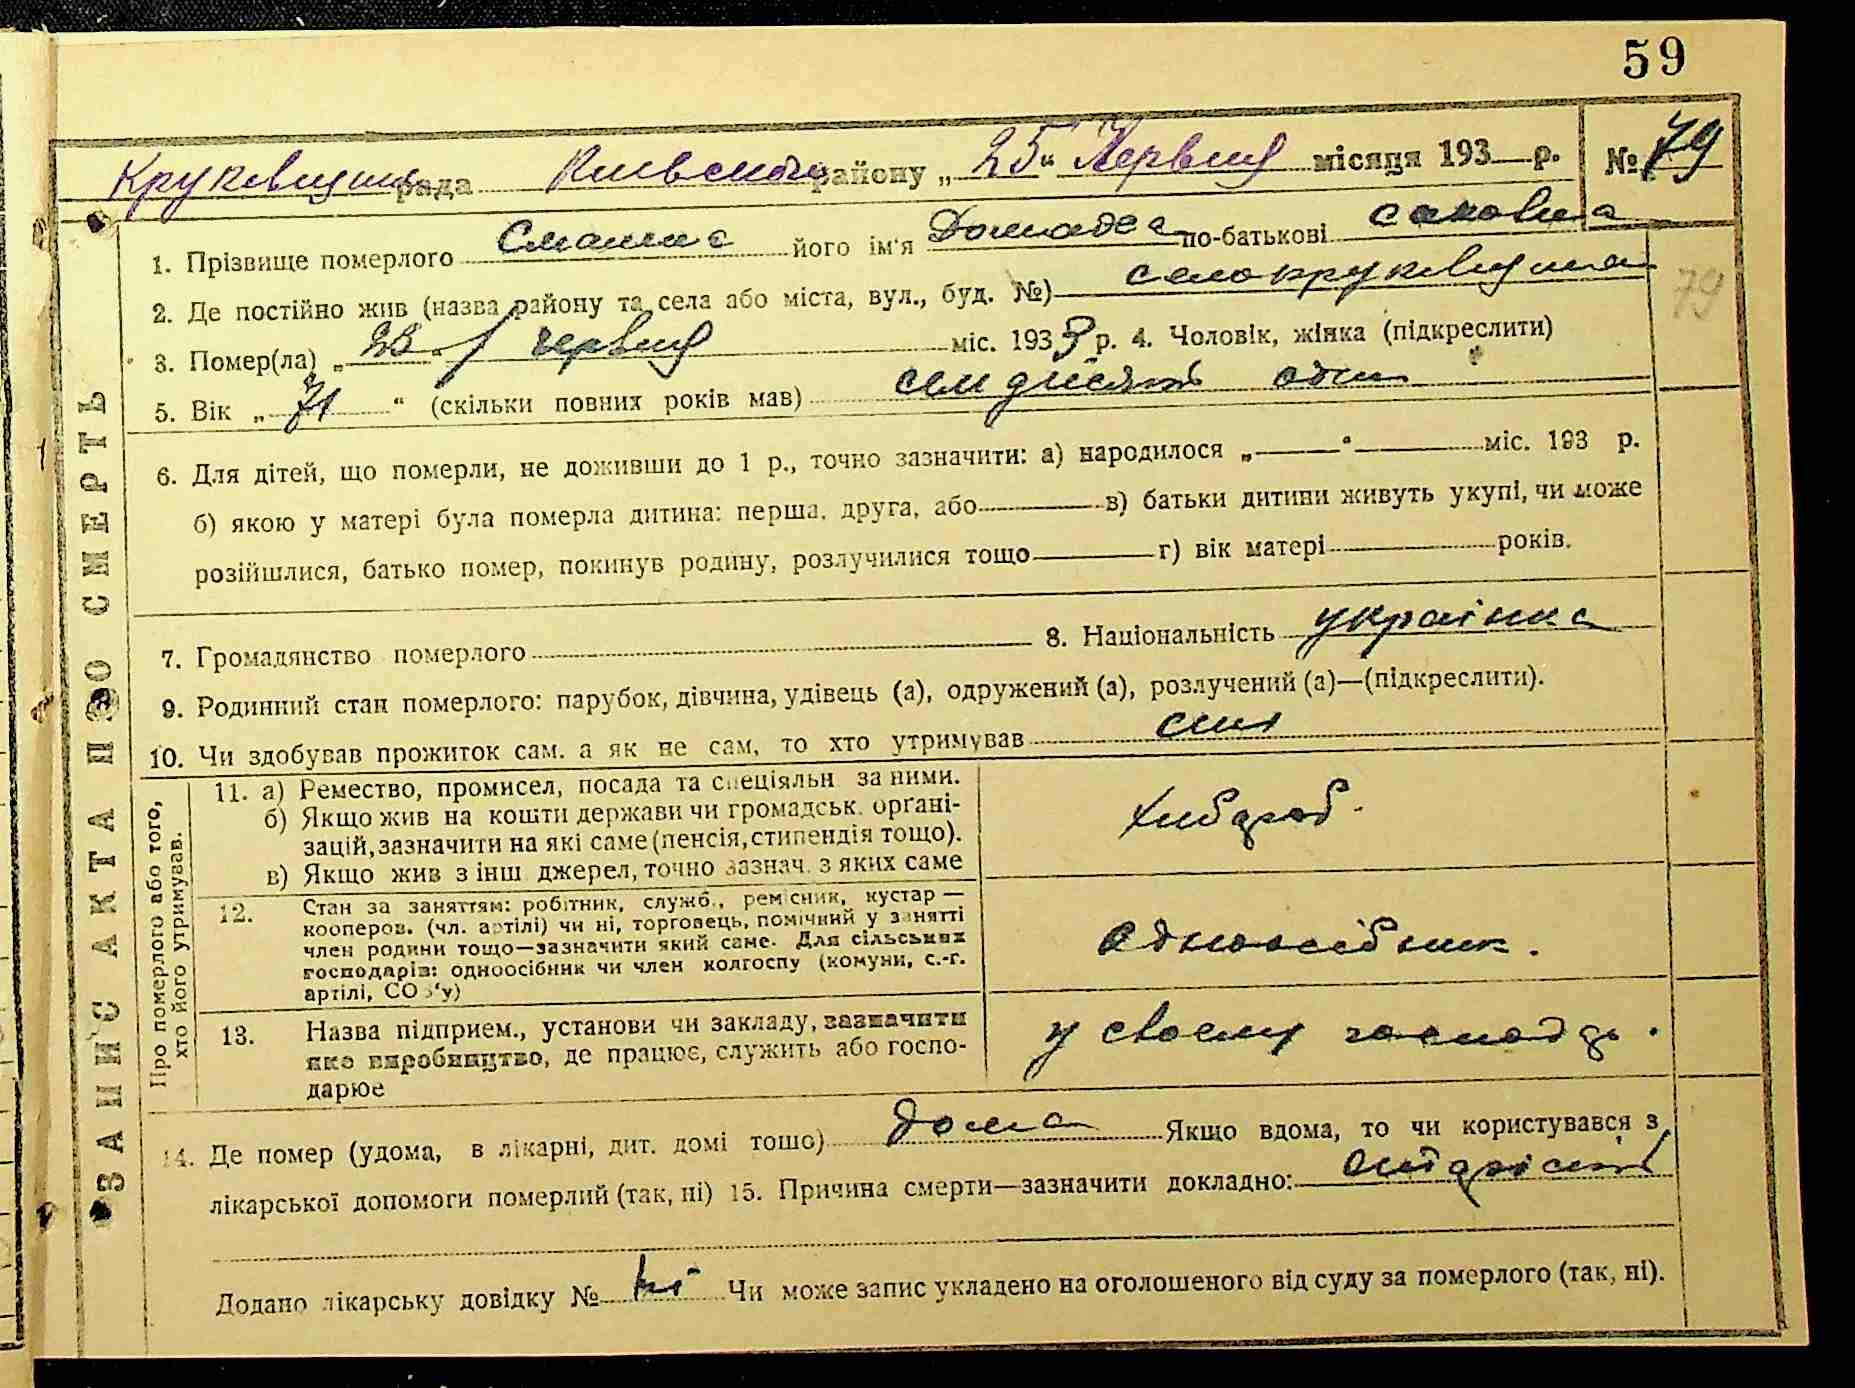 59
рада Київського району „ 25 “ Червня місяця 193 р. № 79
1. Прізвище померлого його ім'я по-батькові
2. Де постійно жив (назва району та села або міста, вул., буд. №) село
79
3. Помер(ла) „ “ червня міс. 1933 р. 4. Чоловік, жінка (підкреслити)
5. Вік „ 71 “ (скільки повних років мав) один
6. Для дітей, що померли, не доживши до 1 р., точно зазначити: а) народилося „ “ міс. 193 р.
б) якою у матері була померла дитина: перша, друга, або в) батьки дитини живуть укупі, чи може
розійшлися, батько помер, покинув родину, розлучилися тощо г) вік матері років.
7. Громадянство померлого 8. Національність українка
9. Родинний стан померлого: парубок, дівчина, удівець (а), одружений (а), розлучений (а)—(підкреслити).
10. Чи здобував прожиток сам. а як не сам, то хто утримував син
ЗАПИС АКТА ПРО СМЕРТЬ
Про померлого або того,
хто його утримував.
11. а) Ремество, промисел, посада та спеціяльн за ними.
б) Якщо жив на кошти держави чи громадськ. органі-
зацій, зазначити на які саме (пенсія, стипендія тощо).
в) Якщо жив з інш джерел, точно зазнач. з яких саме
хлібороб.
12. Стан за заняттям: робітник, служб., ремісник, кустар —
кооперов. (чл. артілі) чи ні, торговець, помічний у занятті
член родини тощо—зазначити який саме. Для сільських
господарів: одноосібник чи член колгоспу (комуни, с.-г.
артілі, СОЗ'у)
одноосібник.
13. Назва підприєм., установи чи закладу, зазначити
яке виробництво, де працює, служить або госпо-
дарює
у своєму господ.
14. Де помер (удома, в лікарні, дит. домі тощо) дома Якщо вдома, то чи користувався з
лікарської допомоги померлий (так, ні) 15. Причина смерти—зазначити докладно:
Додано лікарську довідку № ні Чи може запис укладено на оголошеного від суду за померлого (так, ні).